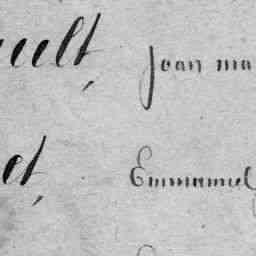 ault, jean ma
et, Emmanuel